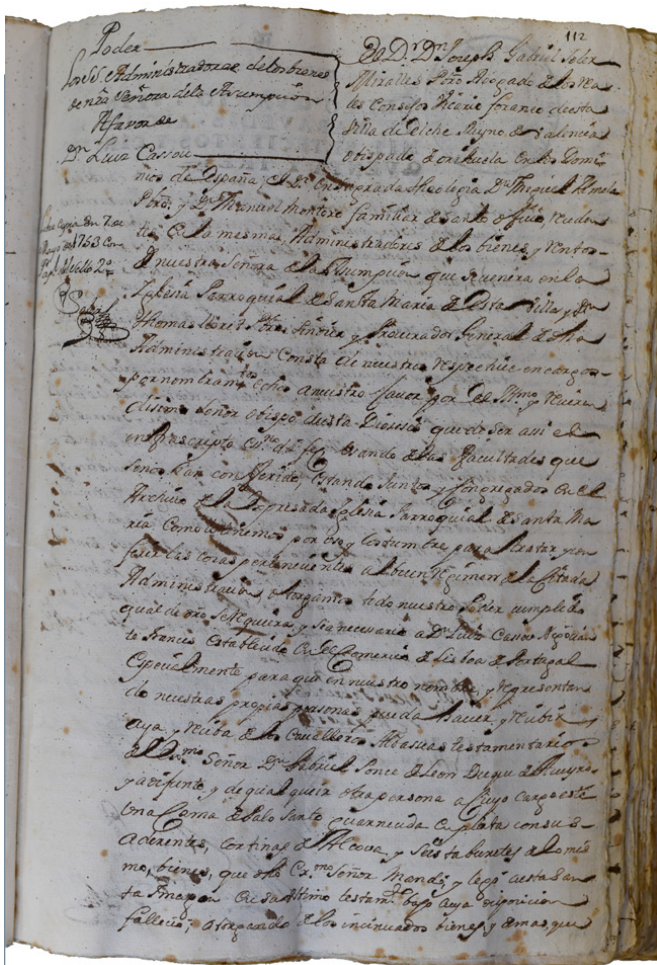 112
Poder
Los SS. Administradores de los bienes
de nra Señora dela Assumpcion
A favor de
Dn. Luis Cassou
Libre copia en 7 de
Mayo de 1753 con
papel del sello 2o
El Dr. Dn. Joseph Gabriel Soler
Miralles Pbro Abogado de los Rea-
les Consejos Vicario foraneo de esta
Villa de Elche Reyno de Valencia
Obispado de Orihuela en los Domi-
nios de España, el Dr. en Sagrada Theologia Dn. Miguel
Pbro, y Dn. Manuel Montoro familiar de Santo Oficio, vecinos
de la mesma, Administradores de los bienes, y rentas
de nuestra Señora de la Assumpcion que se venera en la
Iglesia Parroquial de Santa Maria de esta Villa, y Dn
Thomas Pbro. Sindico, y Procurador General de dha
Administracion Consta de nuestros respective encargos
por nombramtos echos a nuestro favor por el Illmo. y Reve-
rdisimo Señor Obispo de esta Diocesis que de ser assi el
infrascripto Esno da fe; Usando de las facultades que
se nos han conferido, Estando Juntos, y Congregados en el
Archivo de la Expresada Iglesia Parroquial de Santa Ma-
ria Como lo tenemos por uso, y costumbre para tratar, y con-
ferir las cosas pertenecientes al buen regimen de la citada
Administracion, otorgamos todo nuestro Poder cumplido
qual de dro se requiera, y sea necesario a Dn. Luis Cassou Negocian-
te frances Establecido en el Comercio de Lisboa de Portugal
Especialmente para que en nuestro nombre, y representan-
do nuestras propias personas pueda haver, y recibir
aya, y reciba de los Cavalleros Albaceas testamentarios
del Exmo Señor Dn. Gabriel Ponce de Leon Duque de Aveyro
ya difunto, y de qualquier otra persona a cuyo cargo esté
Una Cama de Palo Santo guarnecida en plata con sus
aderentes, cortinas de Alcova, y seis taburetes a lo mis-
mo, bienes, que dho Exmo Señor Mandó, y legó a esta San-
ta Imagen en su ultimo testamto bajo cuya disposicion
fallecio; otorgando de los insinuados bienes, y demas, que